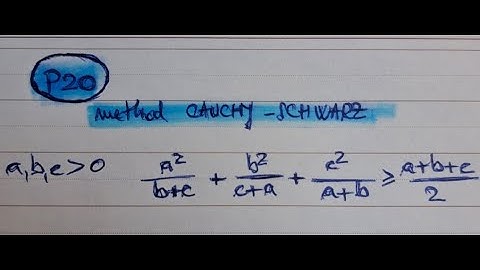 P20
method CAUCHY-SCHWARZ
a,b,c>0 a²/(b+c) + b²/(c+a) + c²/(a+b) ≥ (a+b+c)/2